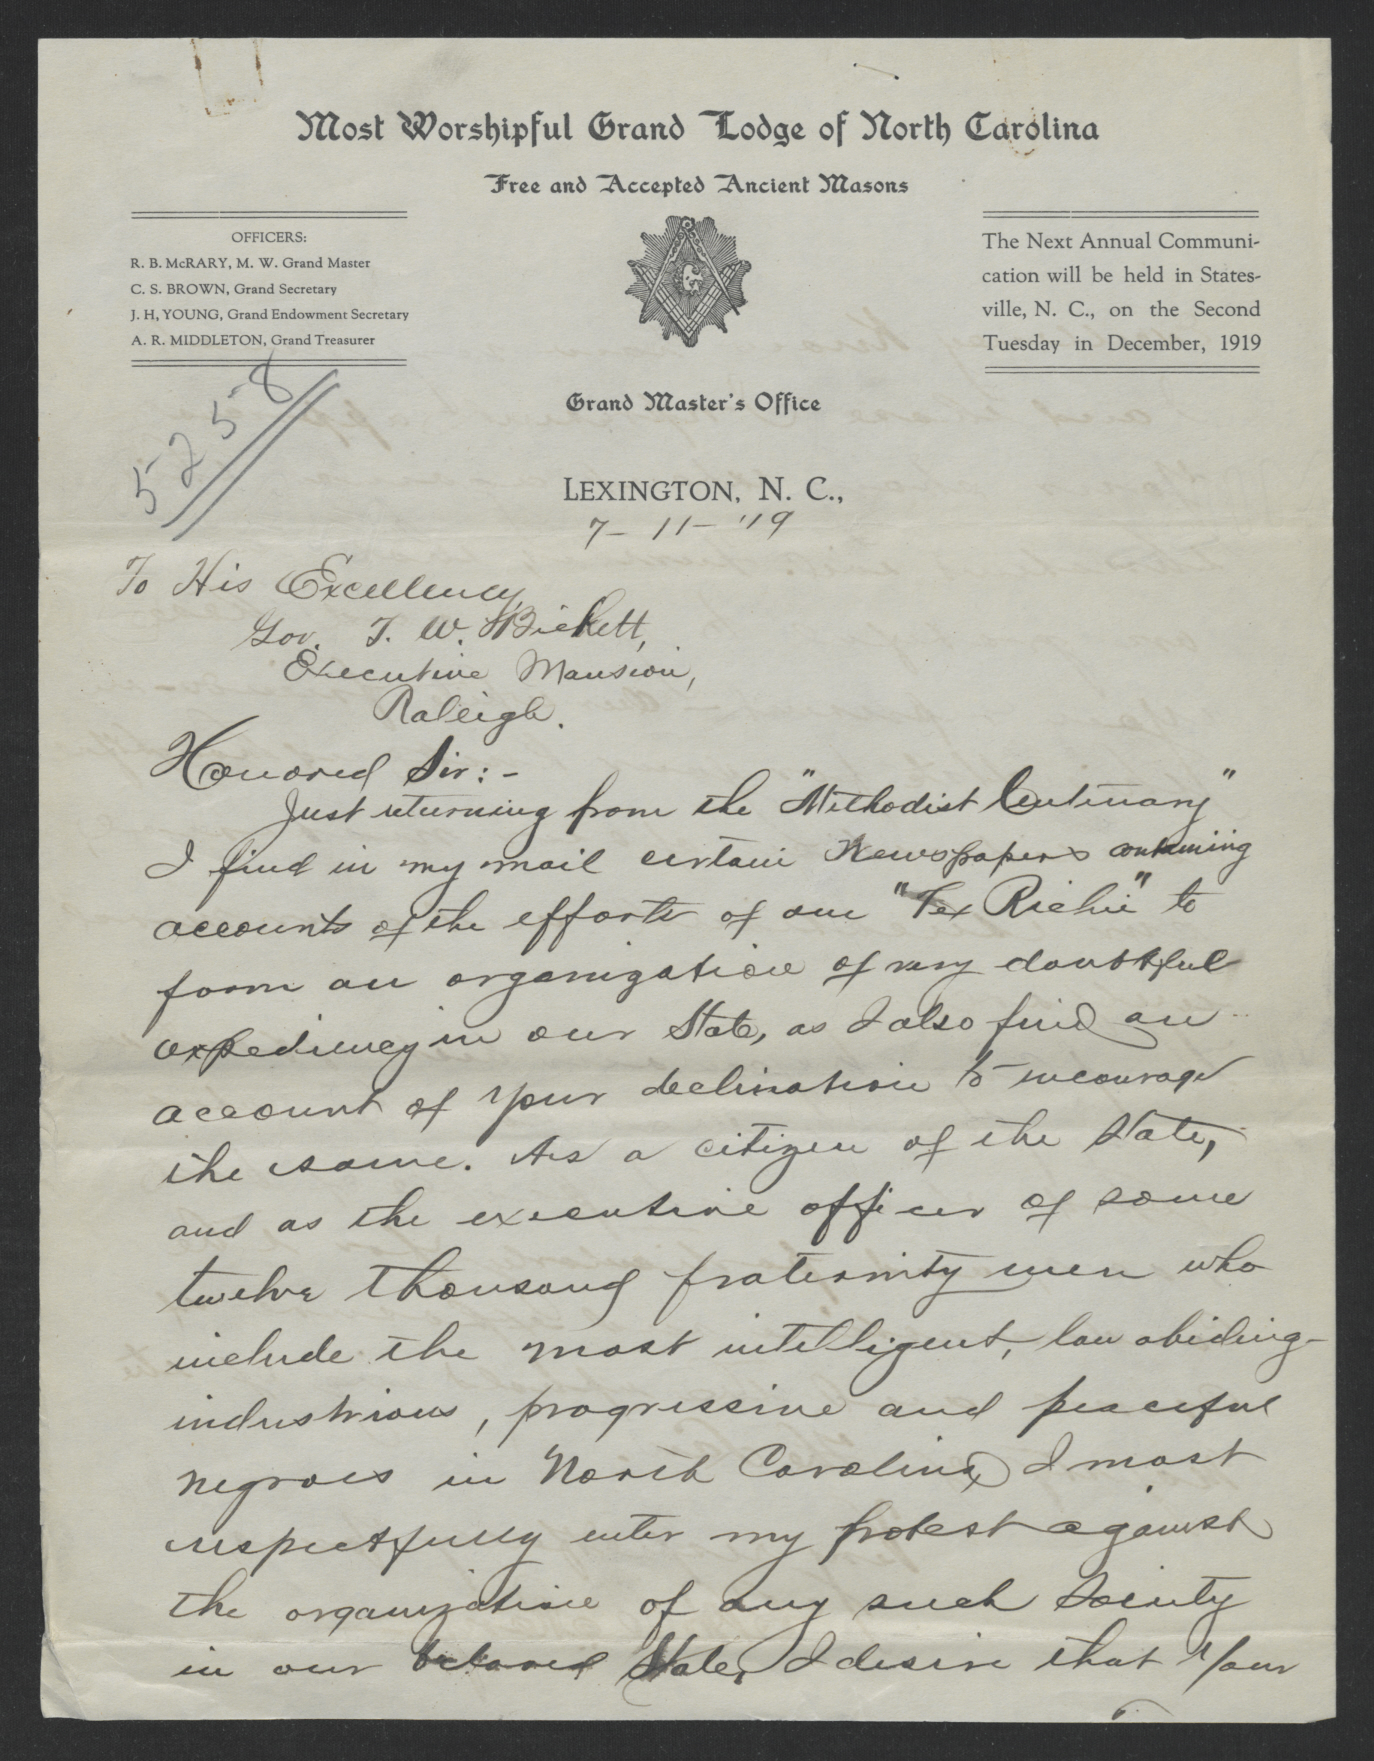 Most Worshipful Grand Lodge of North Carolina
Free and Accepted Ancient Masons
OFFICERS:
R. B. McRARY, M. W. Grand Master
C. S. BROWN, Grand Secretary
J. H, YOUNG, Grand Endowment Secretary
A. R. MIDDLETON, Grand Treasurer
The Next Annual Communi-
cation will be held in States-
ville, N. C., on the Second
Tuesday in December, 1919
5258
Grand Master's Office
LEXINGTON, N. C.,
7-11-'19
To His Excellency,
Gov. T. W. Bickett,
Executive Mansion,
Raleigh.
Honored Sir:-
Just returning from the "Methodist Centenary"
I find in my mail certain Newspapers containing
accounts of the efforts of one "Tex Richie" to
form an organization of very doubtful
expediency in our State, as I also find an
account of your declination to encourage
the same. As a citizen of the State,
and as the executive officer of some
twelve thousand fraternity men who
include the most intelligent, law abiding-
industrious, progressive and peaceful
negroes in North Carolina, I most
respectfully enter my protest against
the organization of any such Society
in our beloved State, I desire that your